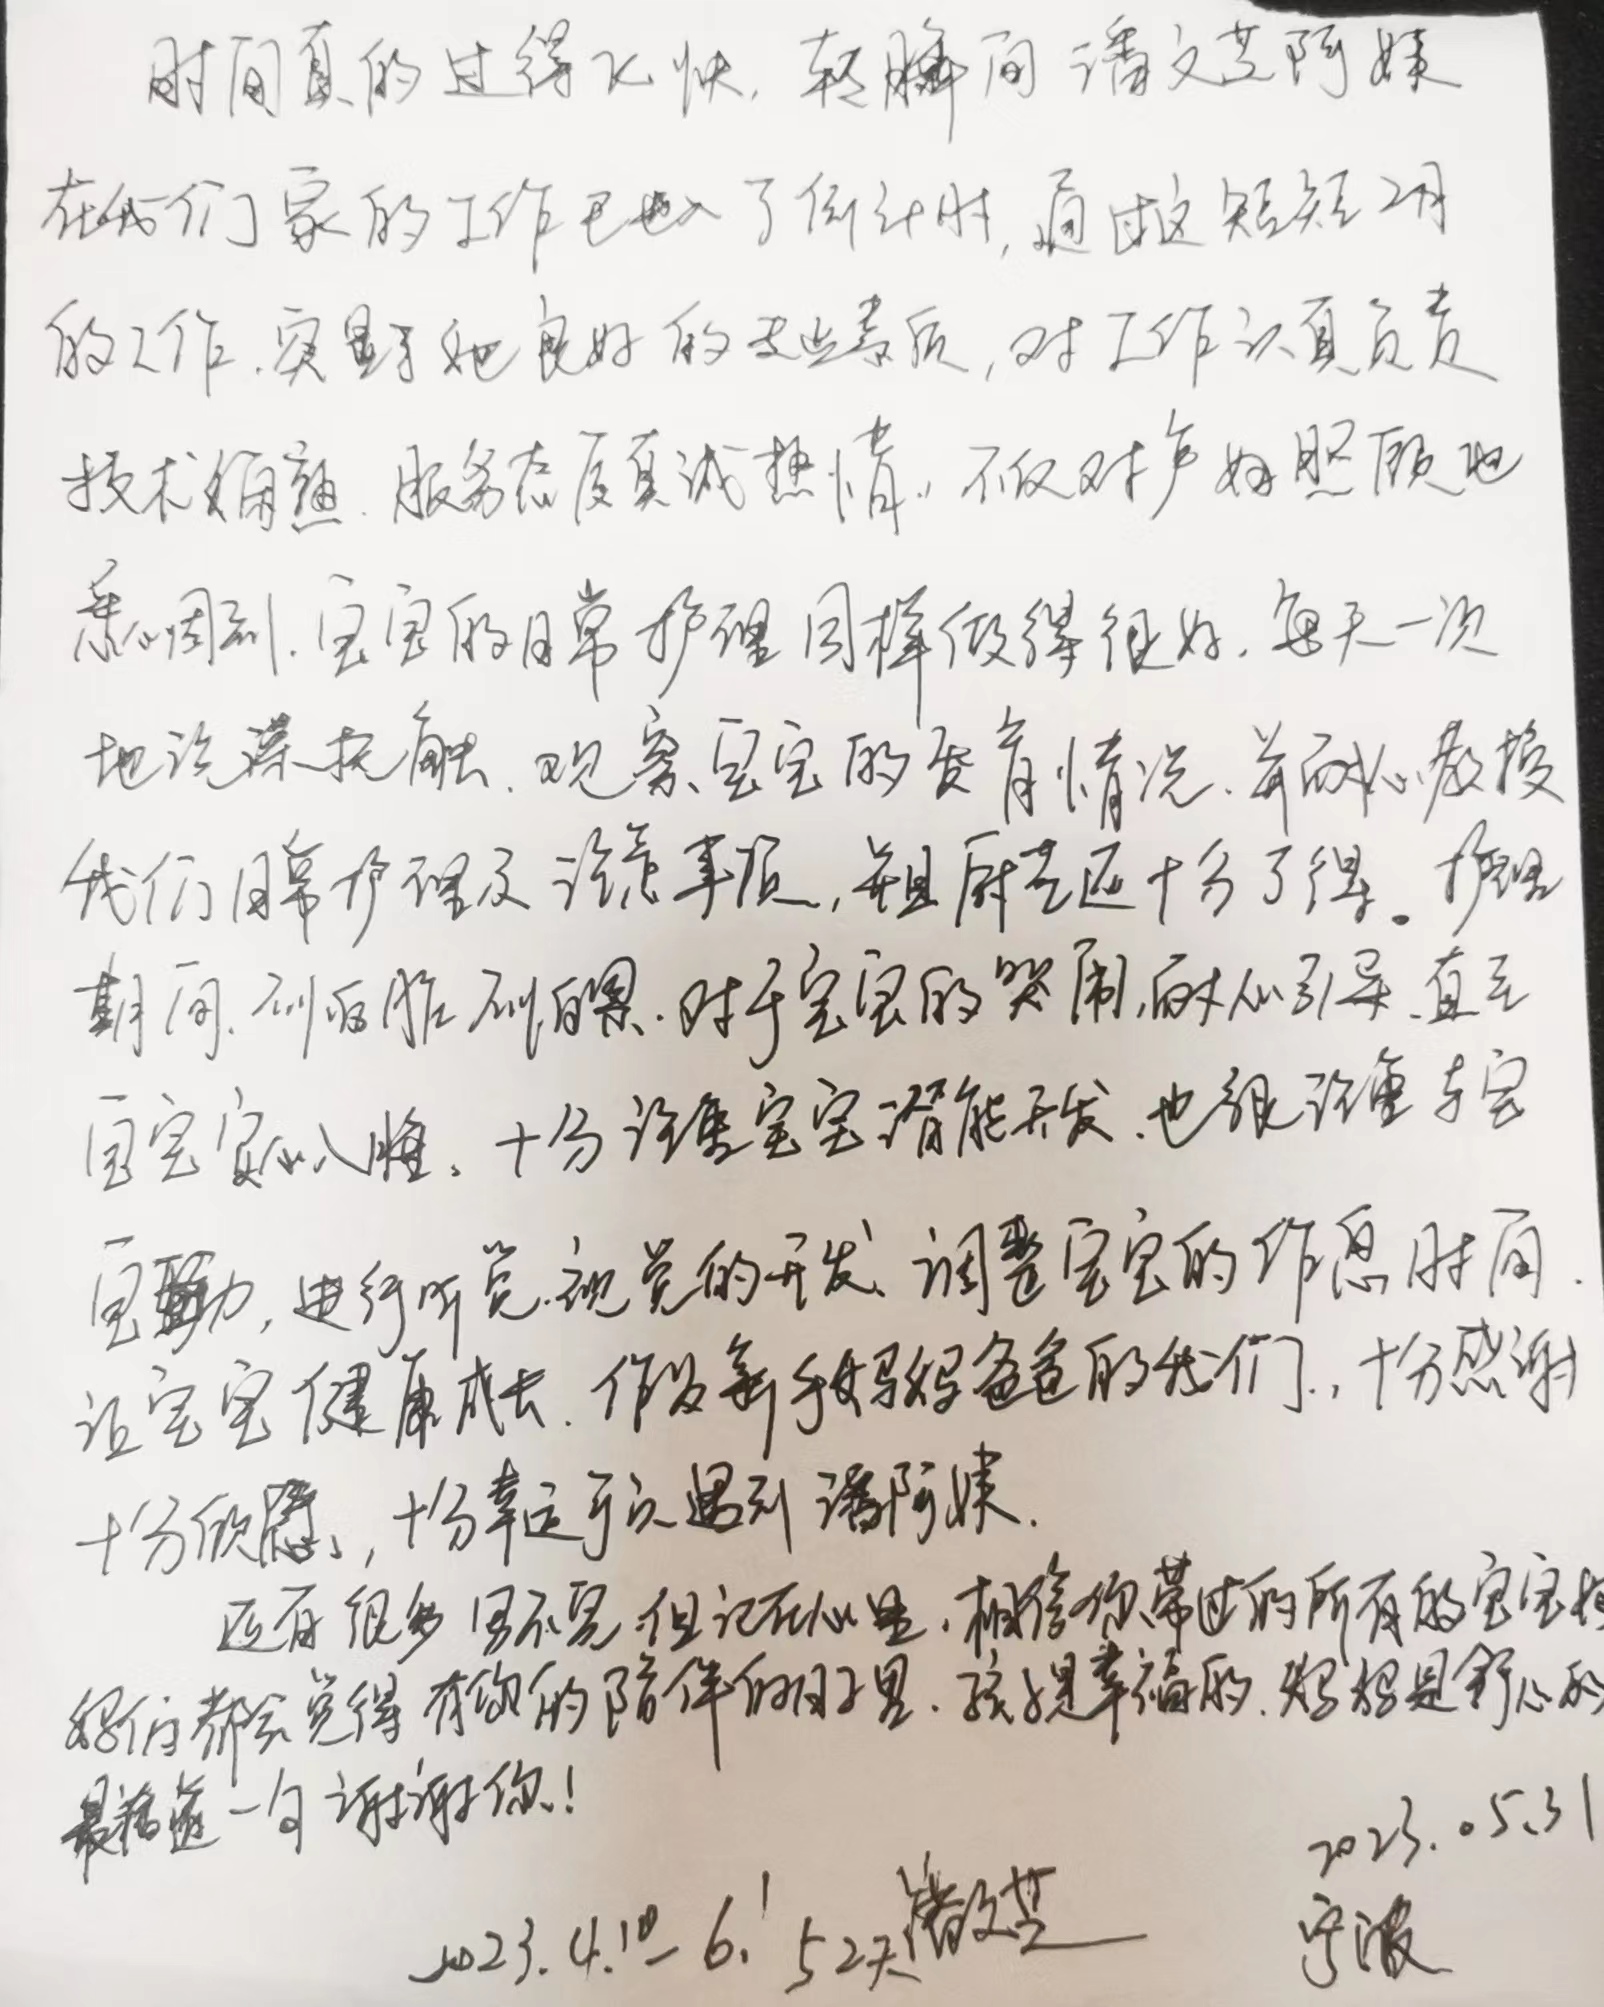 时间真的过得飞快，转瞬间潘文芝阿姨
在我们家的工作已进入了倒计时，通过这短短2月
的工作，实显了她良好的专业素质，对工作认真负责
技术娴熟，服务态度真诚热情，不仅对产妇照顾地
悉心周到，宝宝的日常护理同样做得很好，每天一次
地洗澡抚触，观察宝宝的发育情况，并耐心教授
我们日常护理及注意事项，并且厨艺还十分了得。护理
期间，对于宝宝的哭闹，耐心引导，直至
宝宝安心入睡，十分注重宝宝潜能开发，也很注重与宝
宝互动，进行听觉、视觉的开发、调整宝宝的作息时间，
让宝宝健康成长，作为新手妈妈爸爸的我们，十分感谢
十分欣慰，十分幸运可以遇到潘阿姨.
还有很多写不完，但记在心里，相信你带过的所有的宝宝
妈们都会觉得有你的陪伴的日子里，孩子是幸福的，妈妈是舒心的
最后道一句谢谢你！
2023.05.31
2023.4.10-6.1 52天潘文芝
宁波